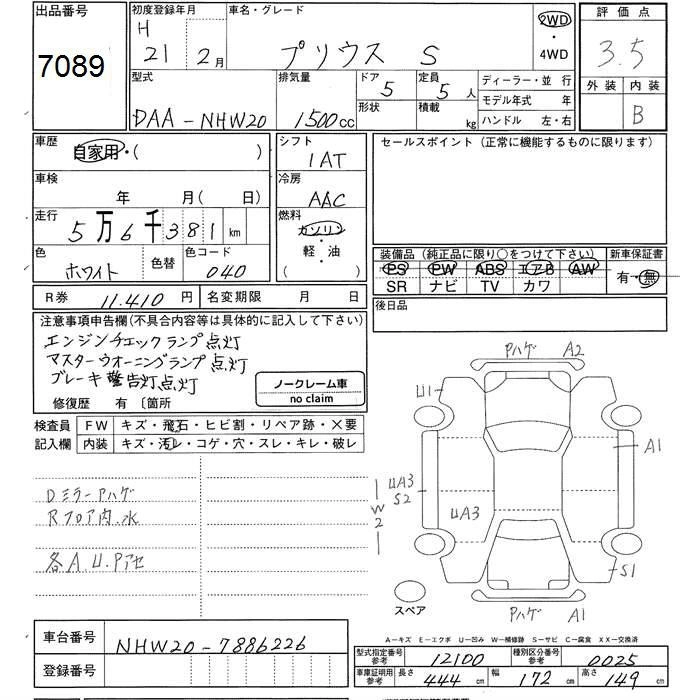 出品番号
7089
初度登録年月
H
21 2月
車名・グレード
プリウス S
2WD
・
4WD
評価点
3.5
外装 内装
B
型式
DAA-NHW20
排気量
1500cc
ドア
5
形状
定員
5人
積載
kg
ディーラー・並 行
モデル年式 年
ハンドル 左・右
車歴
自家用・( )
シフト
1AT
セールスポイント (正常に機能するものに限ります)
車検
年 月( 日)
冷房
AAC
走行
5万6千381km
燃料
ガソリン
・
軽・油
( )
色
ホワイト
色替
色コード
040
装備品 (純正品に限り○をつけて下さい)
PS PW ABS エアB AW
SR ナビ TV カワ
新車保証書
有・無
R券 11.410円
名変期限 月 日
後日品
注意事項申告欄(不具合内容等は具体的に記入して下さい)
エンジンチェックランプ点灯
マスターウオーニングランプ点灯
ブレーキ警告灯点灯
ノークレーム車
no claim
修復歴 有 〔箇所
検査員
記入欄
FW キズ・飛石・ヒビ割・リペア跡・X要
内装 キズ・汚レ・コゲ・穴・スレ・キレ・破レ
Dミラーアハゲ
Rフロア内.水
各A.U.Pアセ
Pハゲ A2
U1
A1
UA3
S2
W
2
UA3
S1
スペア
Pハゲ A1
A―キズ E―エクボ U―凹み W―補修跡 S―サビ C―腐食 XX―交換済
車台番号 NHW20-7886226
登録番号
型式指定番号
参考
12100
種別区分番号
参考
0025
車庫証明用
参考
長さ
444cm
幅
172cm
高さ
149cm